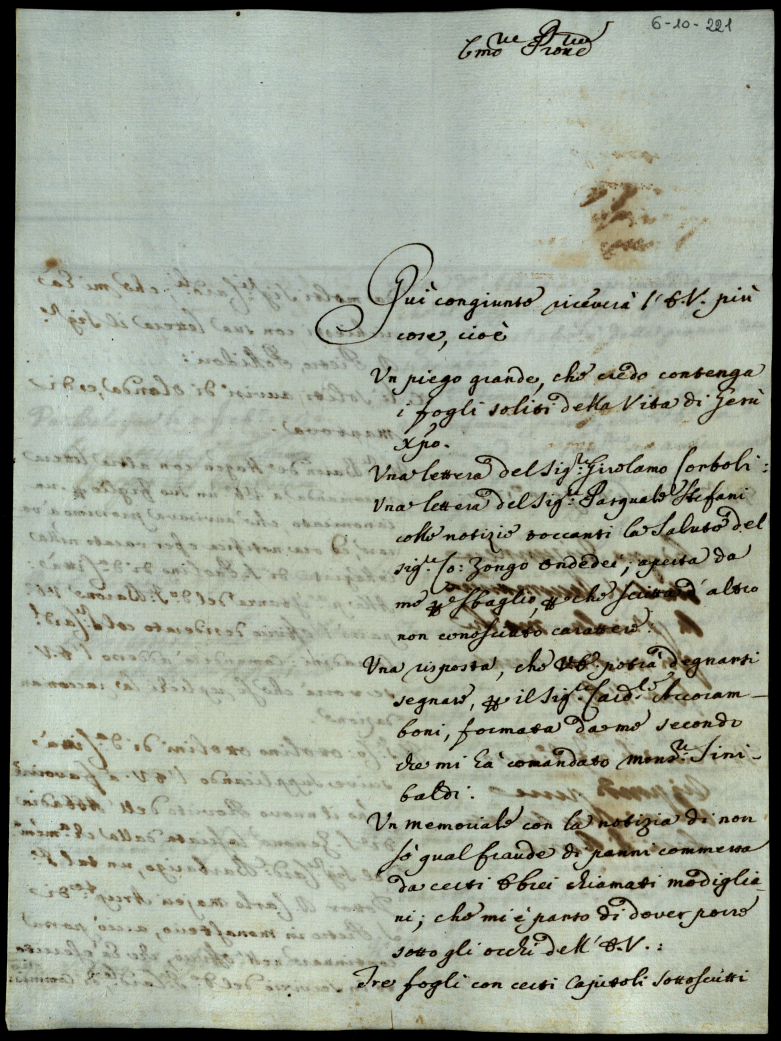 6-10-221
Emo. e Rmo. Prone
Qui congiunte riceverà l'E.V. più
cose, cioè
Un piego grande, che credo contenga
i fogli soliti della Vita di Gesù
Xpo.
Una lettera del Sigr. Girolamo Corboli:
Una lettera del Sigr. Pasquale Stefani
colle notizie toccanti la Salute del
sigre Co: Zongo Ondedei, aperta da
me per sbaglio, perche scritta d'altro
non conosciuto carattere:
Una risposta, che V.E. potrà degnarsi
segnare, per il Sigre Cardle Accoram-
boni, formata da me secondo
che mi hà comandato Monsr. Sini-
baldi:
Un memoriale con la notizia di non
sò qual fraude di panni commessa
da certi Ebrei chiamati Modiglia-
ni; che mi è parso di dover porre
sotto gli occhi dell'E.V.:
Tre fogli con certi Capitoli sottoscritti